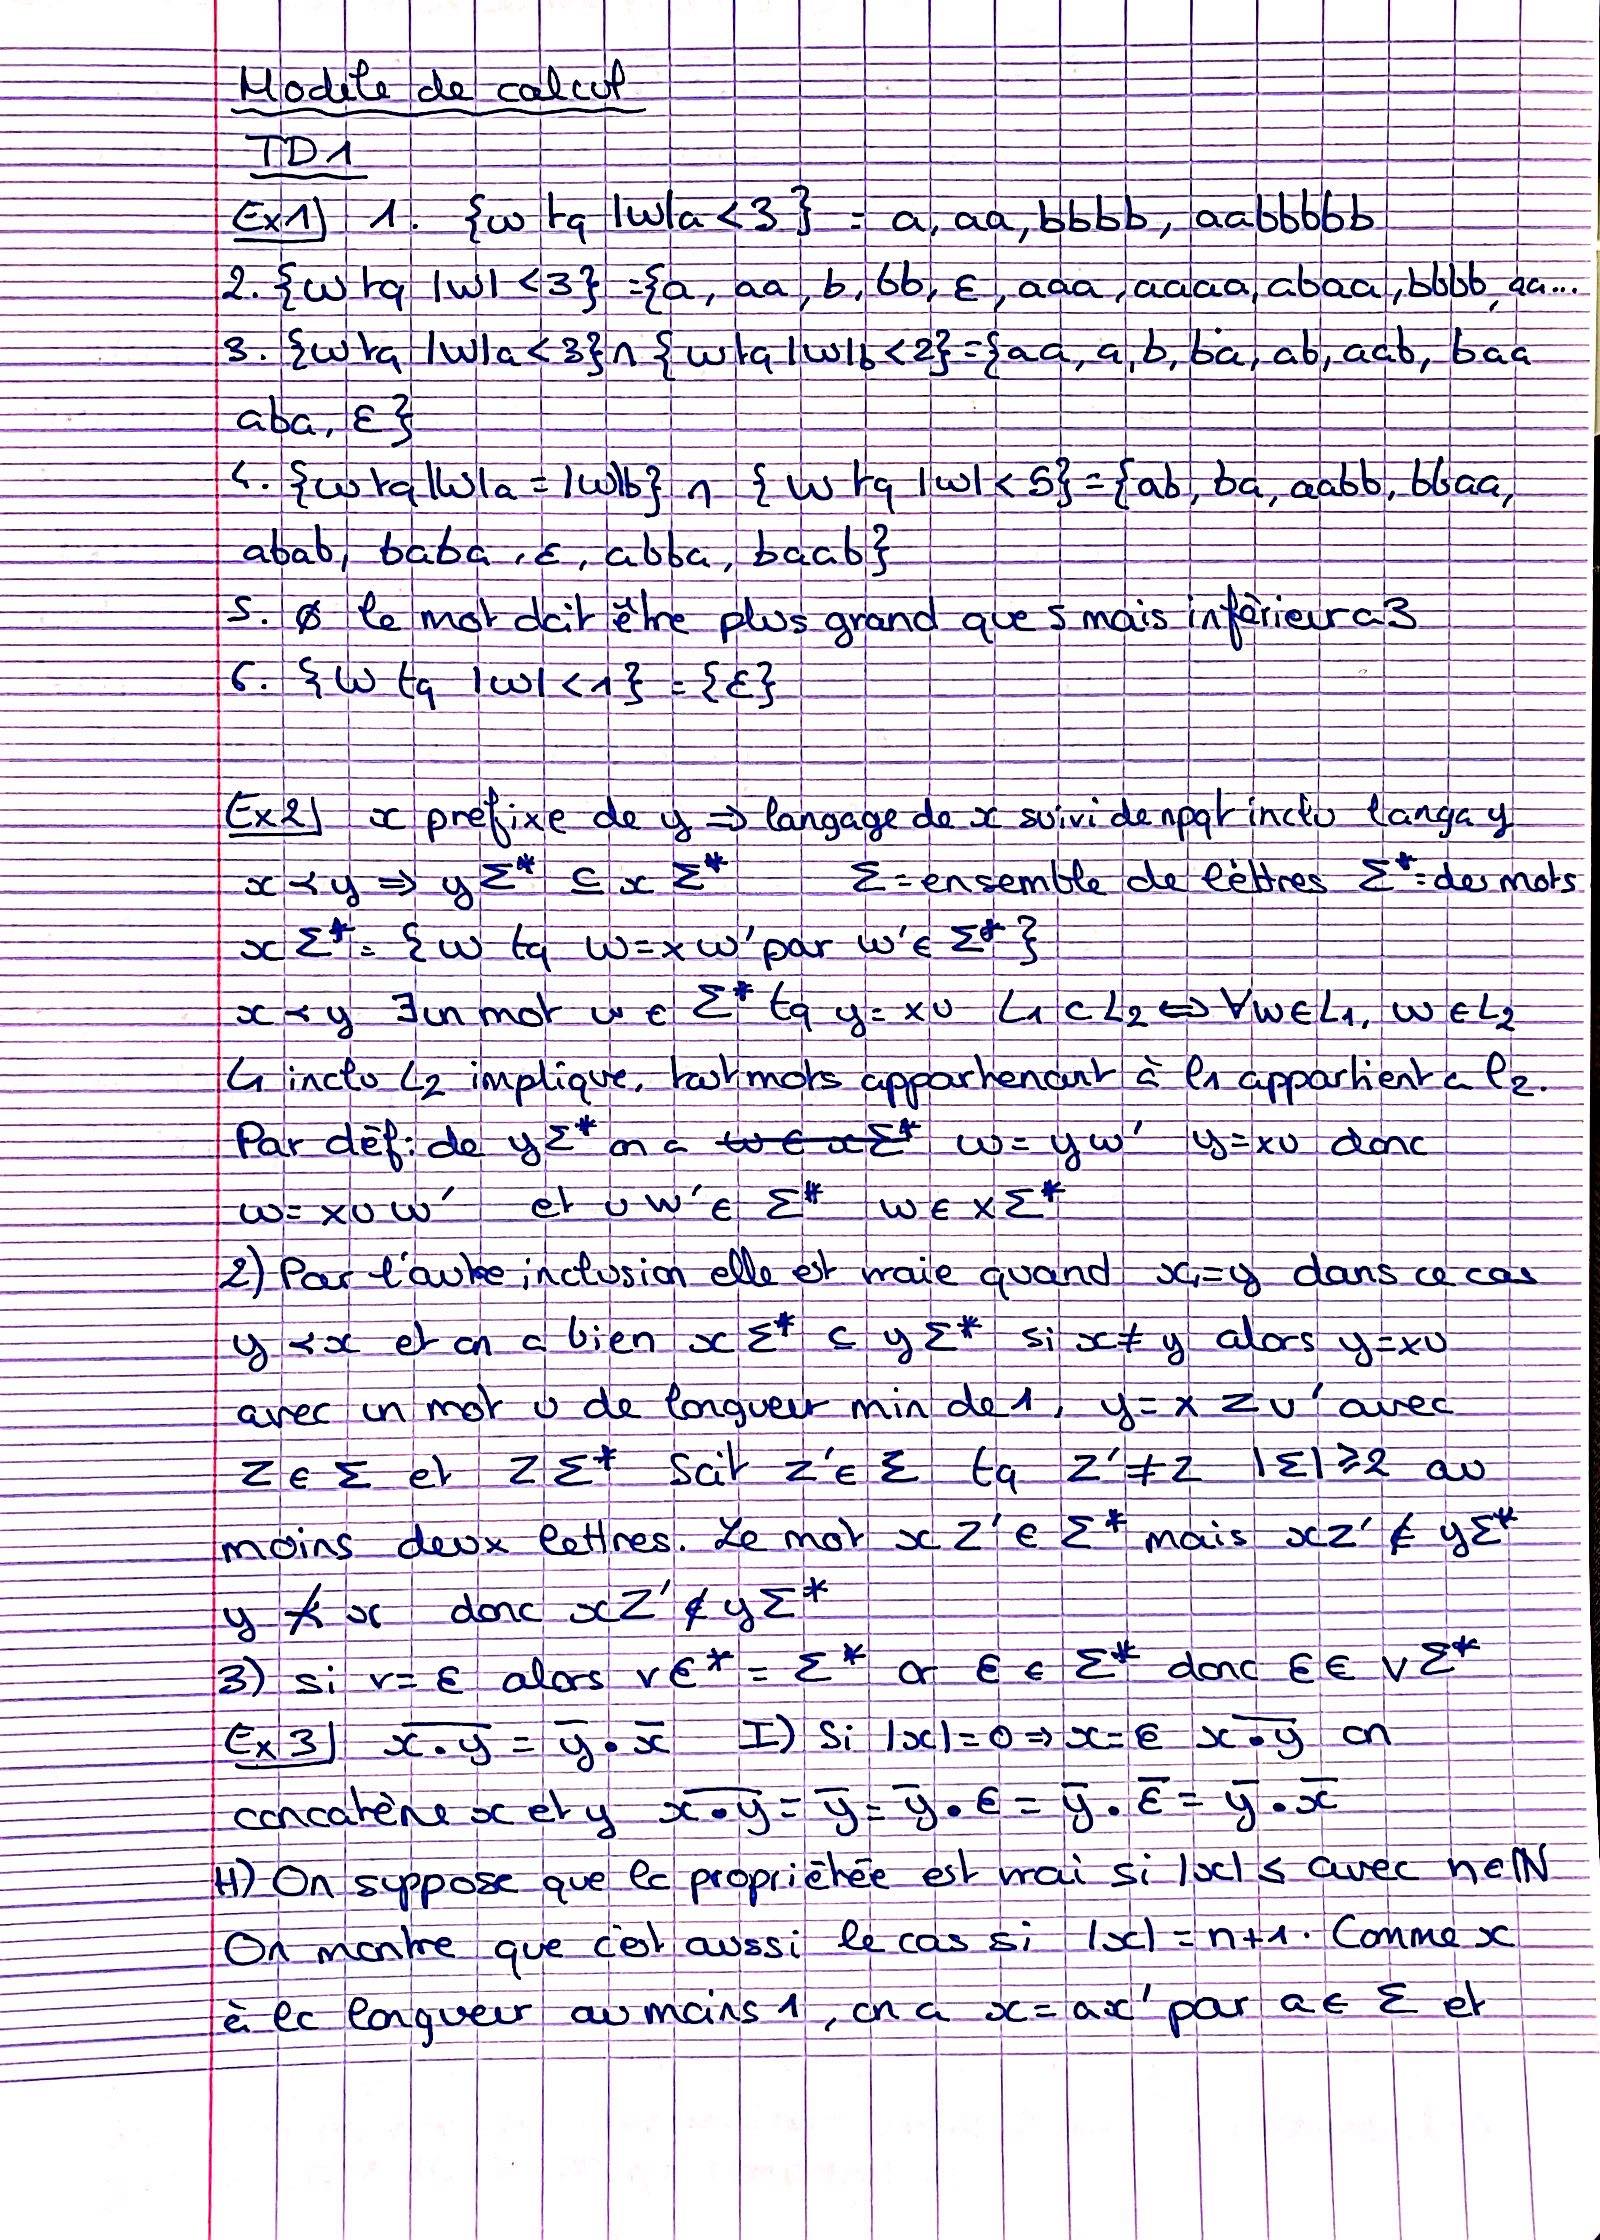 Modèle de calcul
TD1
Ex1] 1. {w tq |w|a < 3 } = a, aa, bbbb, aabbbbb
2. {w tq |w| < 3} = {a, aa, b, bb, ε, aaa, aaaa, abaa, bbbb, aa...
3. {w tq |w|a < 3} ∩ {w tq |w|b < 2} = {aa, a, b, ba, ab, aab, baa
aba, ε}
4. {w tq |w|a = |w|b} ∩ { w tq |w| < 5} = {ab, ba, aabb, bbaa,
abab, baba, ε, abba, baab}
5. ∅ le mot doit être plus grand que 5 mais infèrieur a 3
6. {w tq |w| < 1} = {ε}
Ex2] x prefixe de y ⇒ langage de x suivi de npqt inclu langa y
x ≺ y ⇒ yΣ* ⊆ x Σ* Σ = ensemble de lèttres Σ* = des mots
x Σ* = { w tq w = x w' par w' ∈ Σ* }
x ≺ y ∃ un mot v ∈ Σ* tq y = xv L1 ⊂ L2 ⇔ ∀w ∈ L1, w ∈ L2
L1 inclu L2 implique, tout mots appartenant à l1 appartient a l2.
Par déf: de yΣ* on a ~~w ∈ xΣ*~~ w = yw' y = xv donc
w = xvw' et vw' ∈ Σ* w ∈ xΣ*
2) Pour l'autre inclusion elle est vraie quand x = y dans ce cas
y ≺ x et on a bien xΣ* ⊂ yΣ* si x ≠ y alors y = xv
avec un mot v de longueur min de 1, y = x z v' avec
z ∈ Σ et z Σ* Soit z' ∈ Σ tq z' ≠ z |Σ| ⩾ 2 au
moins deux lettres. Le mot x z' ∈ Σ* mais xz' ∉ yΣ*
y ⊀ x donc xz' ∉ yΣ*
3) si v = ε alors vε* = Σ* or ε ∈ Σ* donc ε ∈ vΣ*
Ex3] x̅.̅y̅ = y̅.x̅ I) Si |x| = 0 ⇒ x = ε x̅.̅y̅ on
concatène x et y x̅.̅y̅ = y̅ = y̅.ε = y̅.ε̅ = y̅.x̅
H) On suppose que la propriétée est vrai si |x| ≤ avec n ∈ ℕ
On montre que c'est aussi le cas si |x| = n+1. Comme x
à la longueur au moins 1, on a x = ax' par a ∈ Σ et